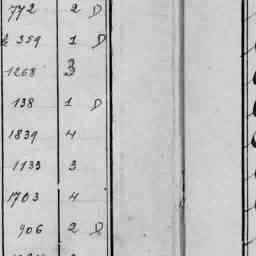 772 2 D
359 1 D
1268 3
138 1 D
1839 4
1133 3
1703 4
906 2 D